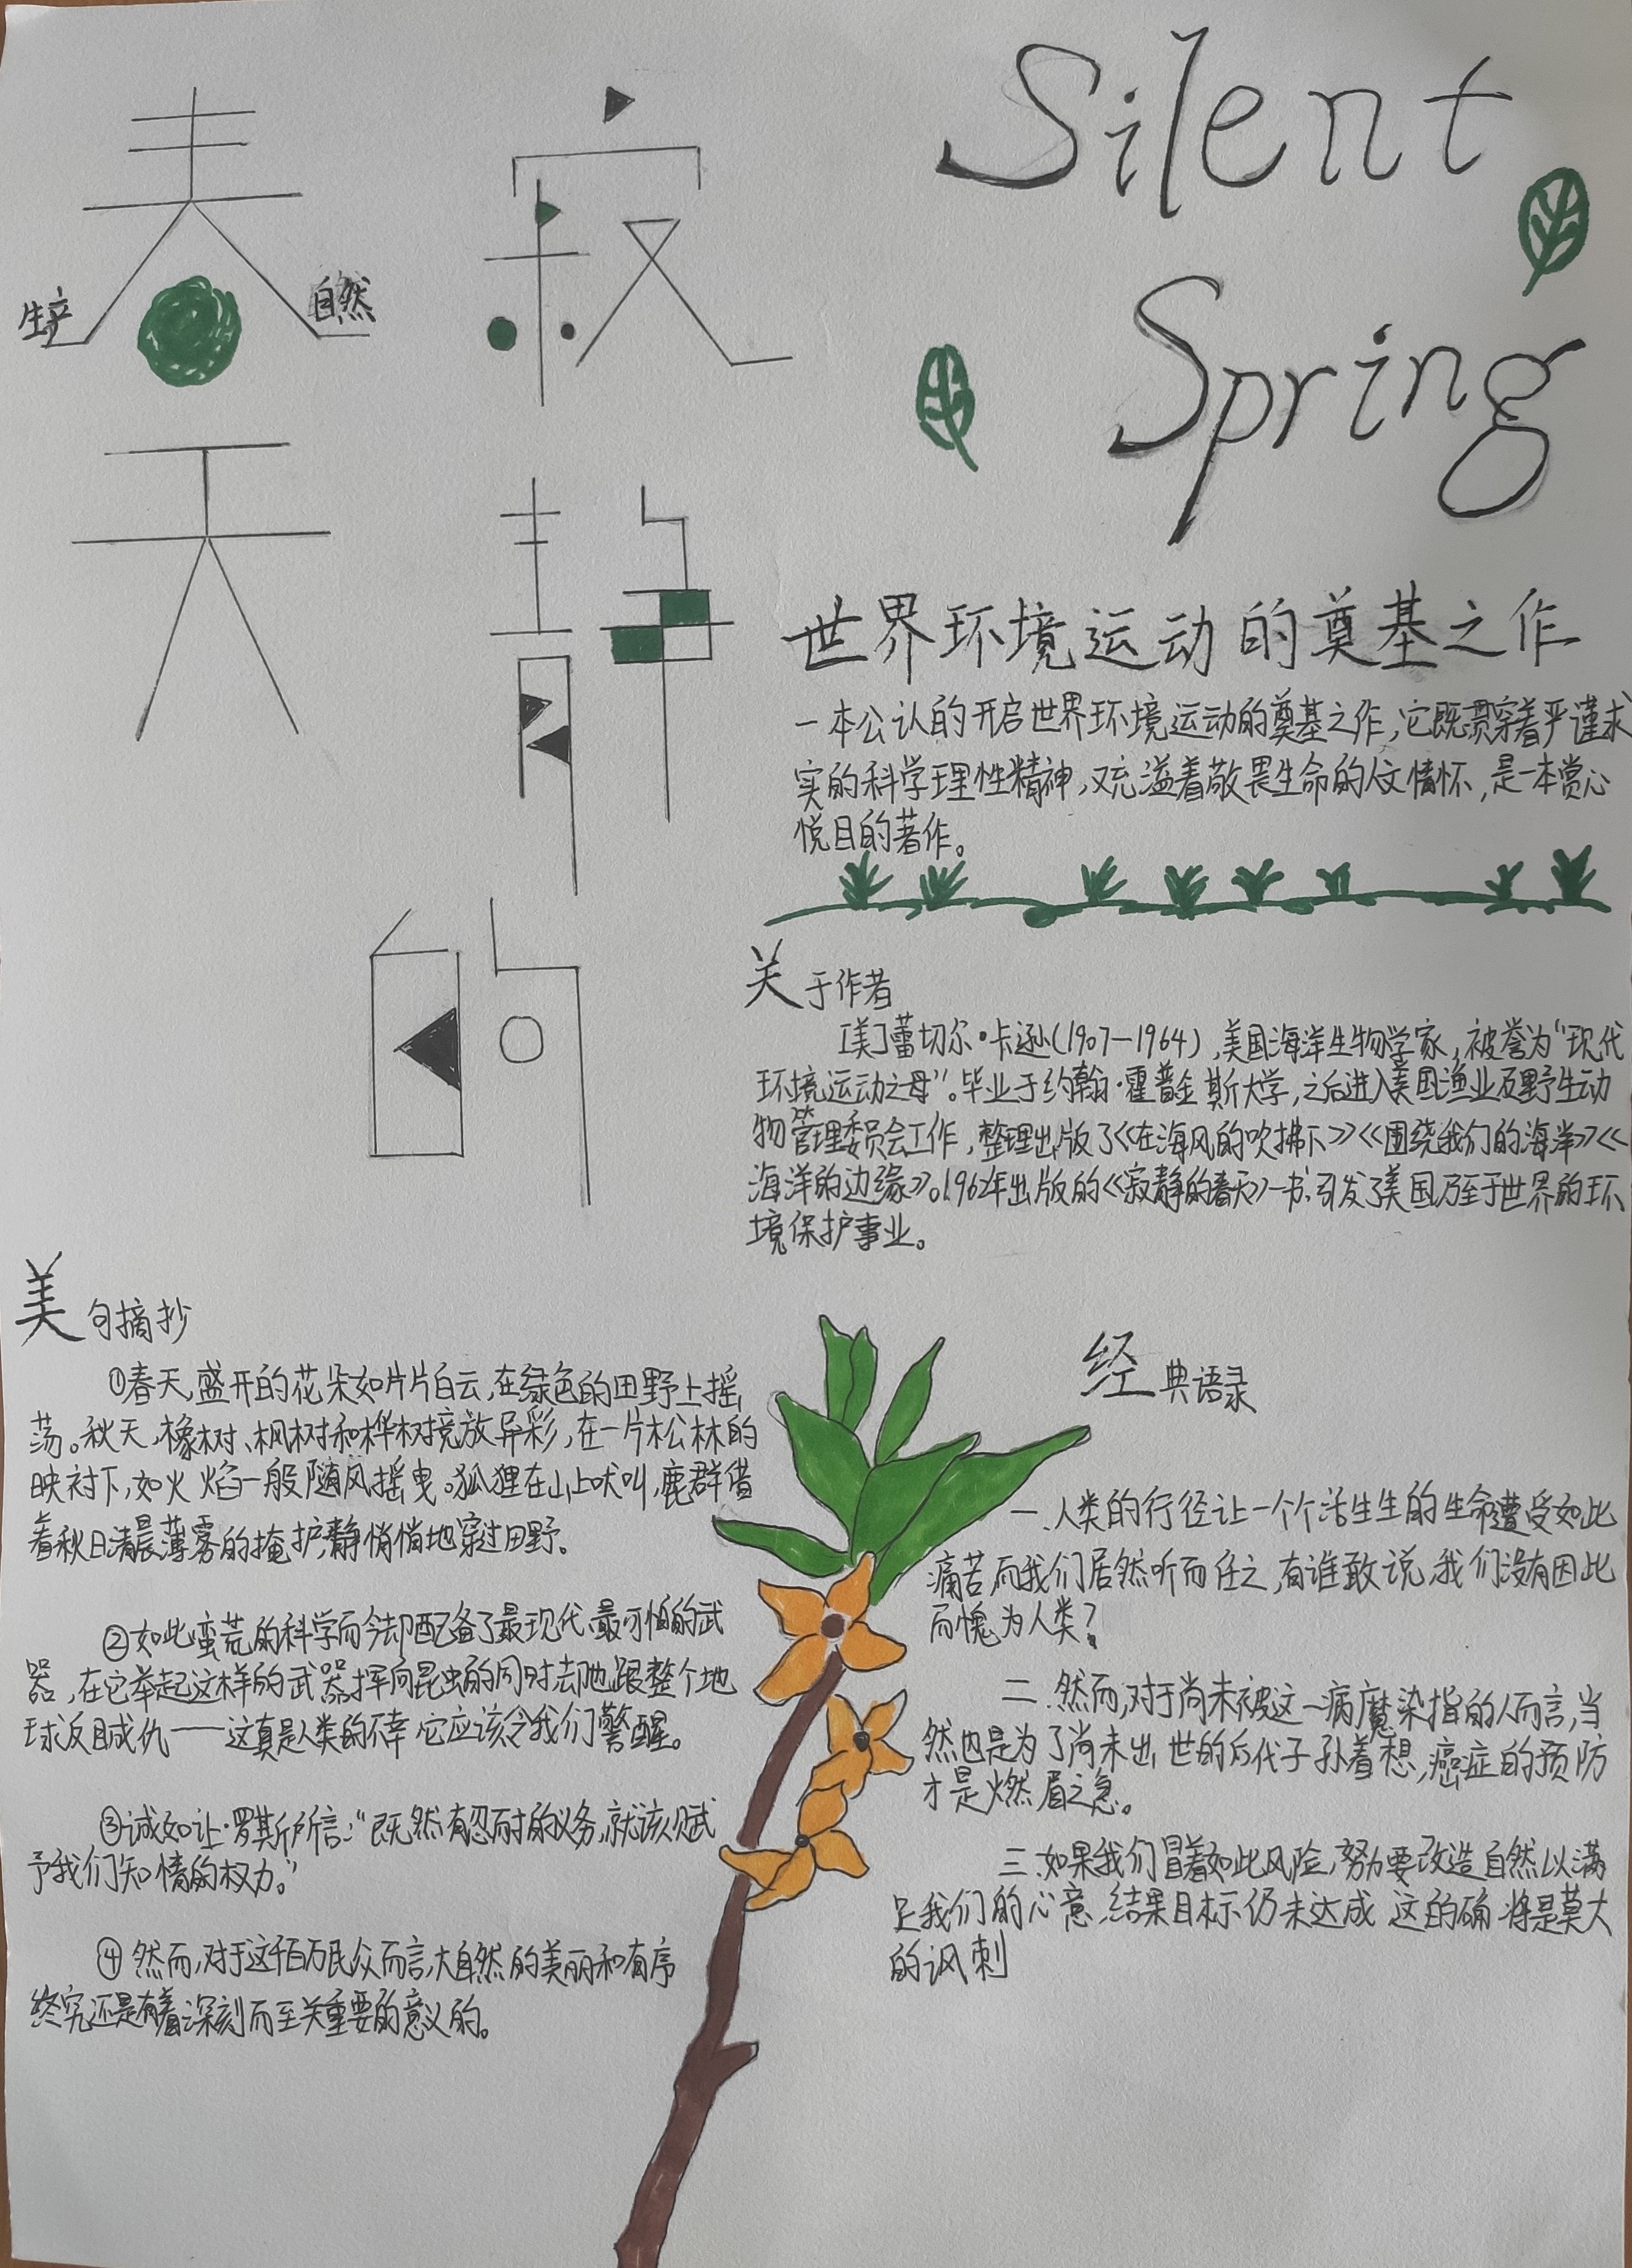 寂静的
春天
生产
自然
Silent
Spring
世界环境运动的奠基之作
一本公认的开启世界环境运动的奠基之作,它既贯穿着严谨求
实的科学理性精神,又充溢着敬畏生命的人文情怀,是一本赏心
悦目的著作。
关于作者
[美]蕾切尔·卡逊(1907—1964),美国海洋生物学家,被誉为“现代
环境运动之母”。毕业于约翰·霍普金斯大学,之后进入美国渔业及野生动
物管理委员会工作,整理出版了《在海风的吹拂下》《围绕我们的海洋》《
海洋的边缘》。1962年出版的《寂静的春天》一书,引发了美国乃至于世界的环
境保护事业。
美句摘抄
①春天,盛开的花朵如片片白云,在绿色的田野上摇
荡。秋天,橡树、枫树和桦树竞放异彩,在一片松林的
映衬下,如火焰一般随风摇曳。狐狸在山上吠叫,鹿群借
着秋日清晨薄雾的掩护,静悄悄地穿过田野。
②如此蛮荒的科学而今却配备了最现代、最可怕的武
器,在它举起这样的武器挥向昆虫的同时却也跟整个地
球反目成仇——这真是人类的不幸,它应该令我们警醒。
③诚如让·罗斯所言:“既然有忍耐的义务,就该赋
予我们知情的权力。”
④然而,对于这千百万民众而言,大自然的美丽和有序
终究还是有着深刻而至关重要的意义的。
经典语录
一、人类的行径让一个个活生生的生命遭受如此
痛苦,而我们居然听而任之,有谁敢说,我们没有因此
而愧为人类?
二、然而,对于尚未被这一病魔染指的人而言,当
然也是为了尚未出世的后代子孙着想,癌症的预防
才是燃眉之急。
三、如果我们冒着如此风险,努力要改造自然以满
足我们的心意,结果目标仍未达成 这的确将是莫大
的讽刺